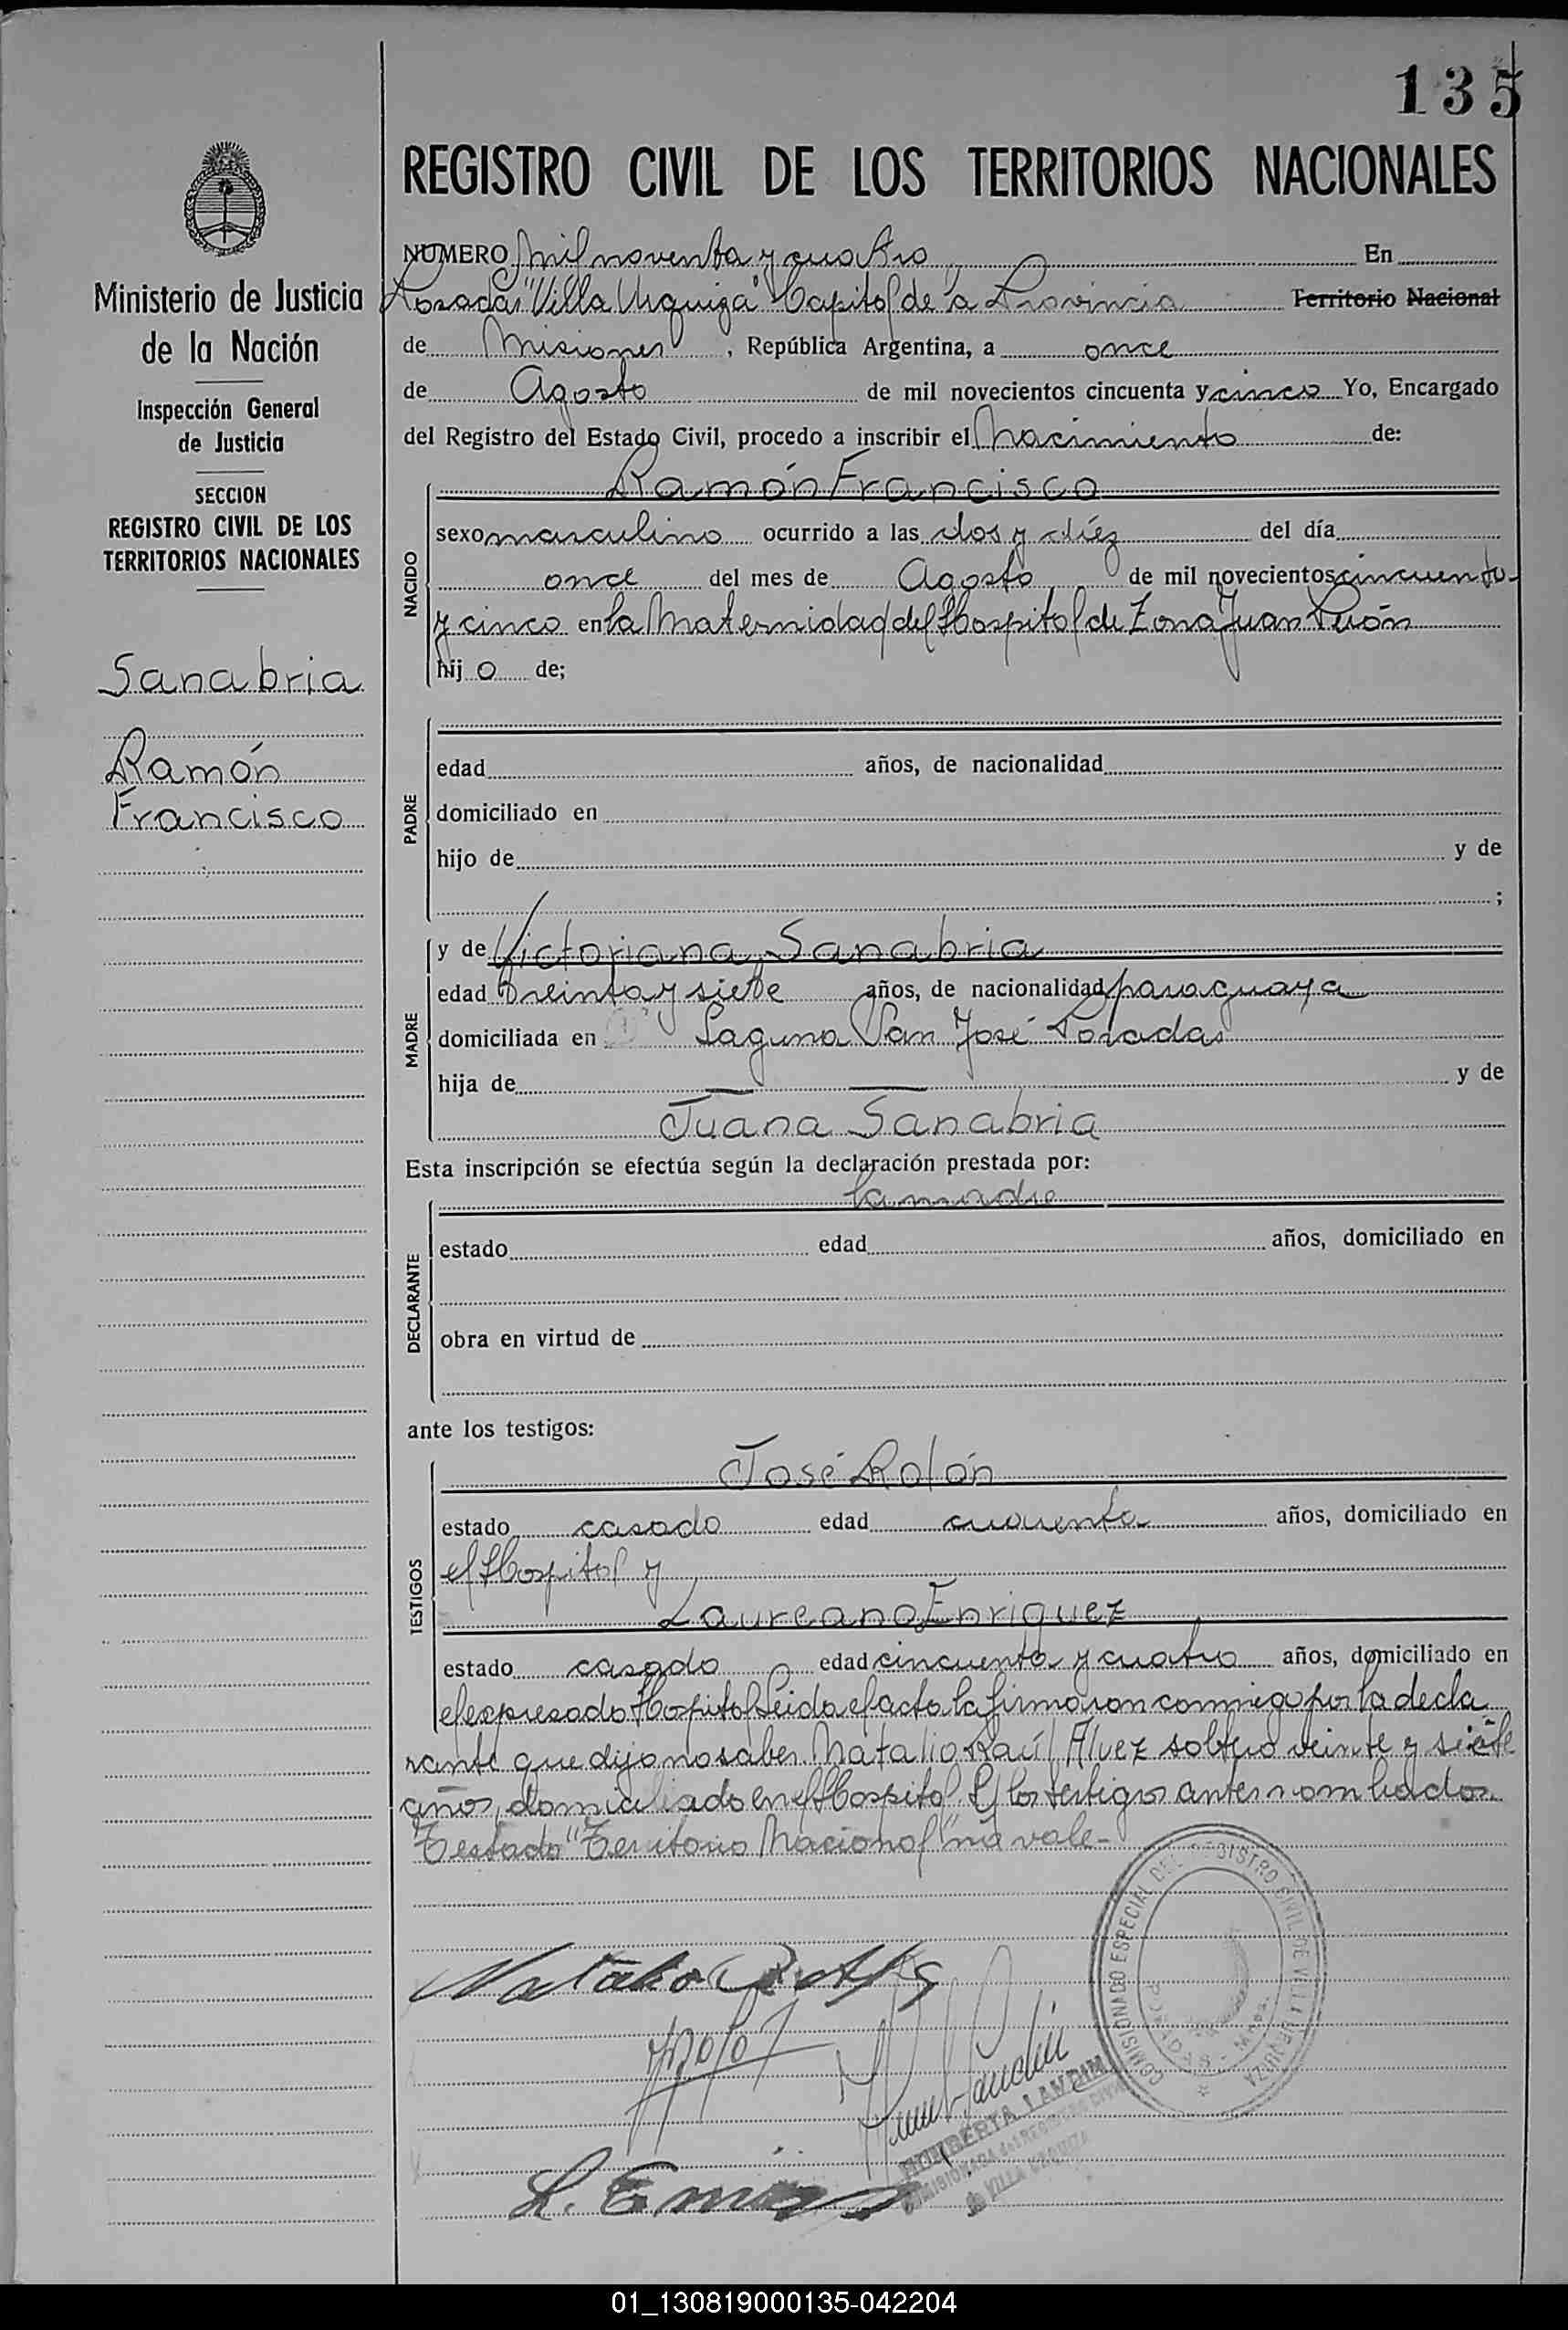 135
REGISTRO CIVIL DE LOS TERRITORIOS NACIONALES
Ministerio de Justicia
de la Nación
Inspección General
de Justicia
SECCION
REGISTRO CIVIL DE LOS
TERRITORIOS NACIONALES
Sanabria
Ramón
Francisco
NUMERO mil noventa y cuatro En
Posadas "Villa Urquiza" Capital de la Provincia Territorio Nacional
de Misiones, República Argentina, a once
de Agosto de mil novecientos cincuenta y cinco Yo, Encargado
del Registro del Estado Civil, procedo a inscribir el Nacimiento de:
Ramón Francisco
NACIDO
sexo masculino ocurrido a las dos y diéz del día
once del mes de Agosto de mil novecientos cincuenta
y cinco en la Maternidad del Hospital de Zona Juan Perón
hijo de;
PADRE
edad años, de nacionalidad
domiciliado en
hijo de y de
;
MADRE
y de Victoriana Sanabria
edad treinta y siete años, de nacionalidad paraguaya
domiciliada en Laguna San José Posadas
hija de — — y de
Juana Sanabria
Esta inscripción se efectúa según la declaración prestada por:
la madre
DECLARANTE
estado edad años, domiciliado en
obra en virtud de
ante los testigos:
José Rolón
TESTIGOS
estado casado edad cuarenta años, domiciliado en
el Hospital y
Laureano Enriquez
estado casado edad cincuenta y cuatro años, domiciliado en
el expresado Hospital Leida el acta la firmaron conmigo por la decla
rante que dijo no saber Natalio Raúl Alvez soltero veinte y siete
años, domiciliado en el Hospital y los testigos antes nombrados.
Testado "Territorio Nacional" no vale-
COMISIONADO ESPECIAL DEL REGISTRO CIVIL DE VILLA URQUIZA
POSADAS - Mnes.
Natalio R Alvez
L. Enriquez
HUMBERTA LANDIM
COMISIONADA del REGISTRO CIVIL
de VILLA URQUIZA
01_130819000135-042204